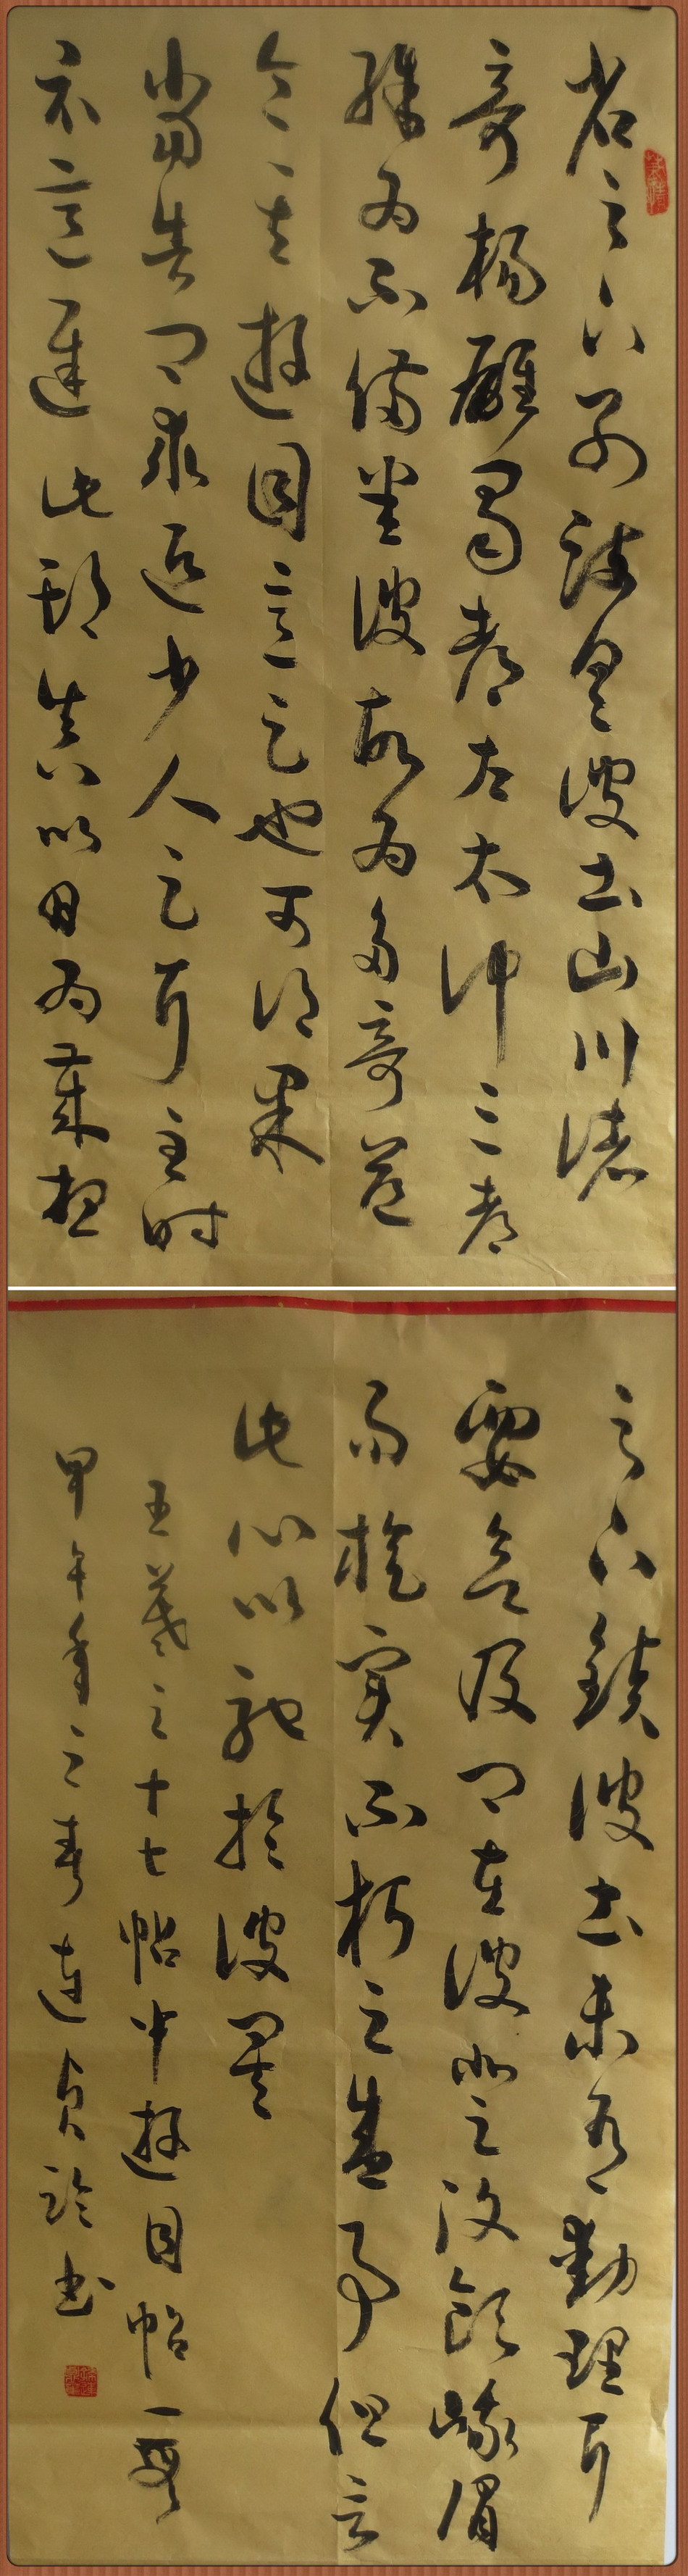 省足下別疏具彼土山川諸
奇楊雄蜀都左太沖三都
殊為不備悉彼故為多奇益
令其遊目意足也可得果
當告卿求迎少人足耳至時
示意遲此期真以日為歲想
足下鎮彼土未有動理耳
要欲及卿在彼登汶領峨眉
而旋實不朽之盛事但言
此心以馳於彼矣
王羲之十七帖中遊目帖一段
甲午年之春連貞書